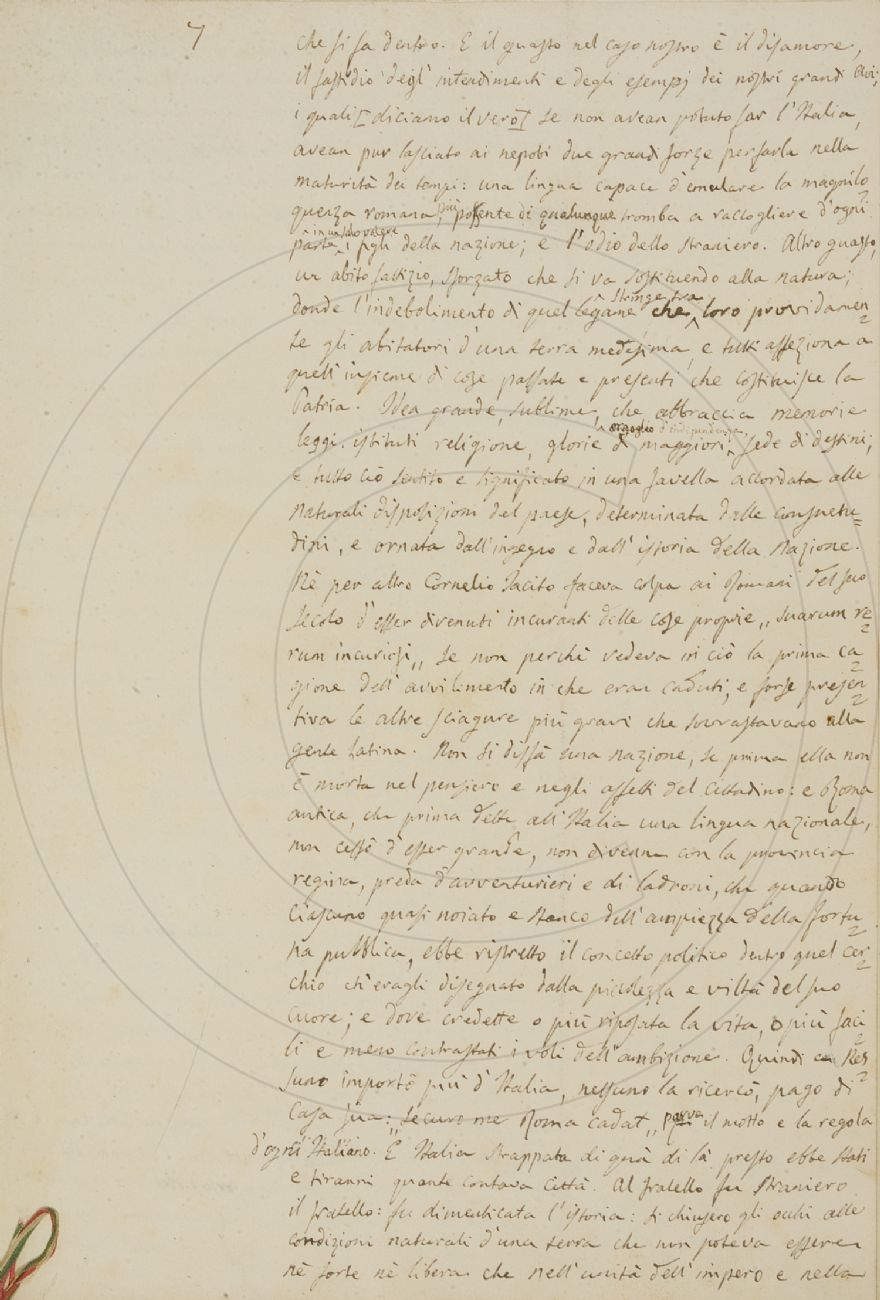 7
che si fa dentro. E il guasto nel caso nostro è il disamore,
il fastidio degl' intendimenti e degli esempj dei nostri grandi Avi;
i quali [diciamo il vero] se non avean potuto far l'Italia,
avean pur lasciato ai nepoti due grandi forze per farla nella
maturità dei tempi: una lingua capace d'emulare la magnilo=
quenza romana, più possente di qualunque tromba a raccogliere d'ogni
parte in un solo volere i figli della nazione; e l'odio dello straniero. Altro guasto,
un abito fattizio, sforzato che si va sostituendo alla natura;
donde l'indebolimento di quel legame che stringe tra loro provvidamen=
te gli abitatori d'una terra medesima, e tutti affeziona a
quell'insieme di cose passate e presenti, che costituisce la
Patria. Idea grande, sublime, che abbraccia memorie
leggi istituti religione, glorie di maggiori, orgoglio d'indipendenza, fede di destini;
e tutto ciò sentito e significato in una favella accordata alle
naturali disposizioni del paese, determinata dalle consuetu=
dini, e ornata dall'ingegno e dall'istoria della Nazione.
Nè per altro Cornelio Tacito faceva colpa ai Romani del suo
secolo d'esser divenuti incuranti delle cose proprie „ suarum re=
rum incuriosi „ se non perchè vedeva in ciò la prima ca=
gione dell'avvilimento in che eran caduti, e forse presen=
tiva le altre sciagure più gravi che sovrastavano alla
gente Latina. Non si disfà una nazione, se prima ella non
è morta nel pensiero e negli affetti del Cittadino: e Roma
antica, che prima dette all'Italia una lingua nazionale,
non cessò d'esser grande, non divenne con la provincia
regina, preda d'avventurieri e di ladroni, che quando
ciascuno quasi noiato e stanco dell'ampiezza della fortu=
na pubblica, ebbe ristretto il concetto politico dentro quel cer=
chio ch'eragli disegnato dalla picchezza e viltà del suo
cuore; e dove credette o più riposata la vita, o più faci=
li e meno contrastati i voli dell'ambizione. Quindi a nes=
suno importò più d'Italia, nessuno la ricercò, pago di
casa sua: „ securo me Roma cadat „ parve il motto e la regola
d'ogni Italiano. E Italia strappata di quà di là presto ebbe Stati
e tiranni quante contava Città. Al fratello fu straniero
il fratello: fu dimenticata l'istoria: si chiusero gli occhi alle
condizioni naturali d'una terra che non poteva essere
nè forte nè libera che nell'unità dell'impero e nella